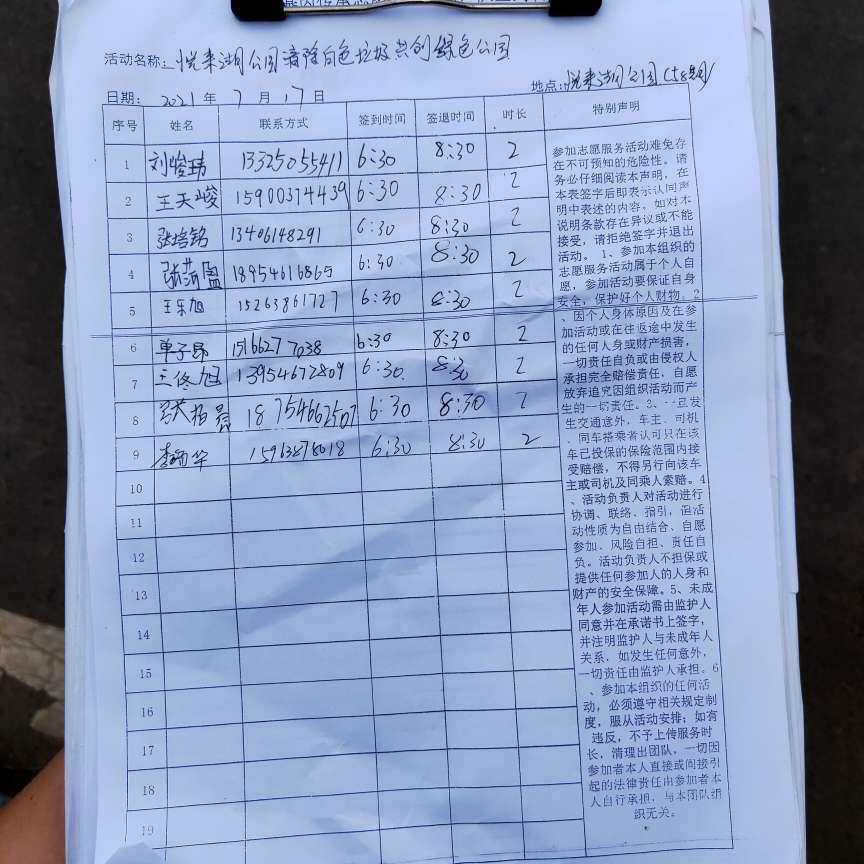 活动名称：悦来湖公园清除白色垃圾共创绿色公园
日期：2021年7月17日 地点：悦来湖公园
序号 姓名 联系方式 签到时间 签退时间 时长 特别声明
1 刘峻玮 13325055411 6:30 8:30 2
2 王天峻 15900374439 6:30 8:30 2
3 张培铭 13406148291 6:30 8:30 2
4 18954616865 6:30 8:30 2
5 王乐旭 15263861727 6:30 8:30 2
6 单子昂 15166277038 6:30 8:30 2
7 王佟旭 13954672809 6:30 8:30 2
8 18754662507 6:30 8:30 2
9 6:30 8:30 2
10
11
12
13
14
15
16
17
18
19
参加志愿服务活动难免存
在不可预知的危险性。请
务必仔细阅读本声明，在
本表签字后即表示认同声
明中表述的内容，如对本
说明条款存在异议或不能
接受，请拒绝签字并退出
活动。1、参加本组织的
志愿服务活动属于个人自
愿，参加活动要保证自身
安全，保护好个人财物。2
、因个人身体原因及在参
加活动或在往返途中发生
的任何人身或财产损害，
一切责任自负或由侵权人
承担完全赔偿责任，自愿
放弃追究因组织活动而产
生的一切责任。3、一旦发
生交通意外，车主、司机
、同车搭乘者认可只在该
车已投保的保险范围内接
受赔偿，不得另行向该车
主或司机及同乘人索赔。4
、活动负责人对活动进行
协调、联络、指引，但活
动性质为自由结合、自愿
参加、风险自担、责任自
负。活动负责人不担保或
提供任何参加人的人身和
财产的安全保障。5、未成
年人参加活动需由监护人
同意并在承诺书上签字，
并注明监护人与未成年人
关系，如发生任何意外，
一切责任由监护人承担。6
、参加本组织的任何活
动，必须遵守相关规定制
度，服从活动安排；如有
违反，不予上传服务时
长，清理出团队，一切因
参加者本人直接或间接引
起的法律责任由参加者本
人自行承担，与本团队组
织无关。